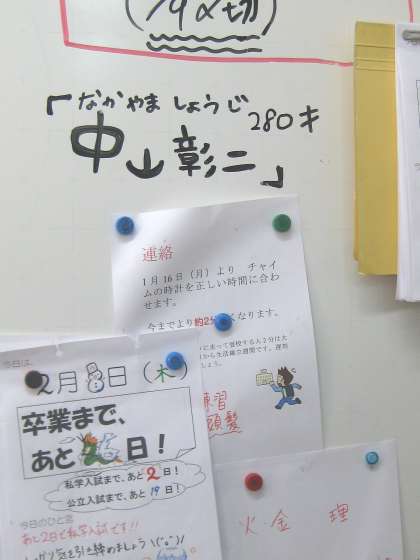 〆切
「なかやま しょうじ 280才
中山彰二」
連絡
1月16日（月）より チャイ
ムの時計を正しい時間に合わ
せます。
今までより約2分
くなります。
練習
頭髪
今日は、
2月8日（木）
卒業まで、
あと 日！
私学入試まで、あと2日！
公立入試まで、あと19日！
今日のひと言
あと2日で私学入試です!!
しっかり気を引き締めましょう
火・金 理